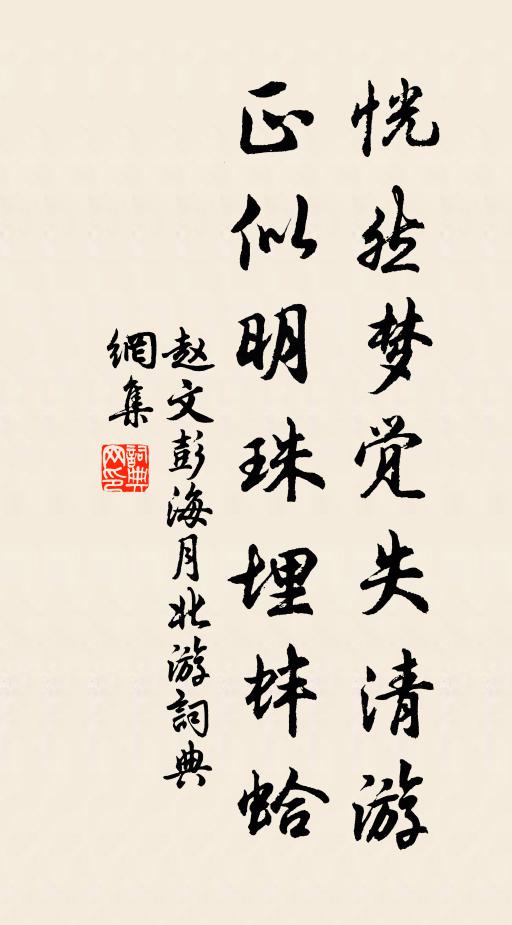 恍然梦觉失清游
正似明珠埋蚌蛤
赵文彭海月北游詞典
網集
詞典网印